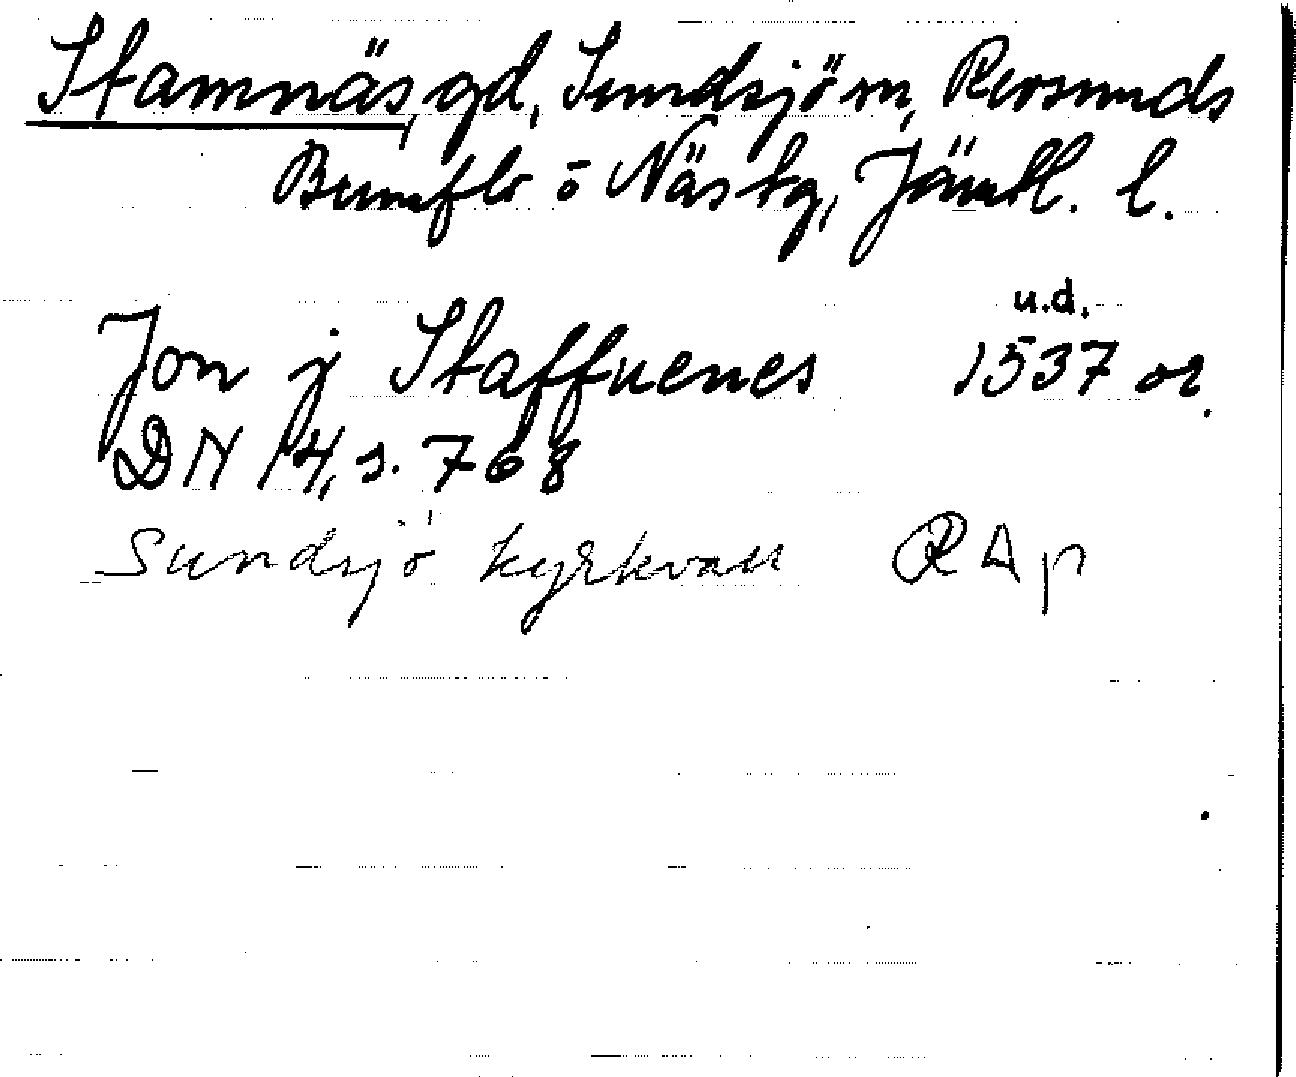 Stamnäs, gd, Sundsjö sn, Revsunds
Brunflo o Näs tg, Jämtl. l.
u.d.
Jon j Staffuenes 1537 or.
DN 14, s. 768
Sundsjö kyrkvall RAp